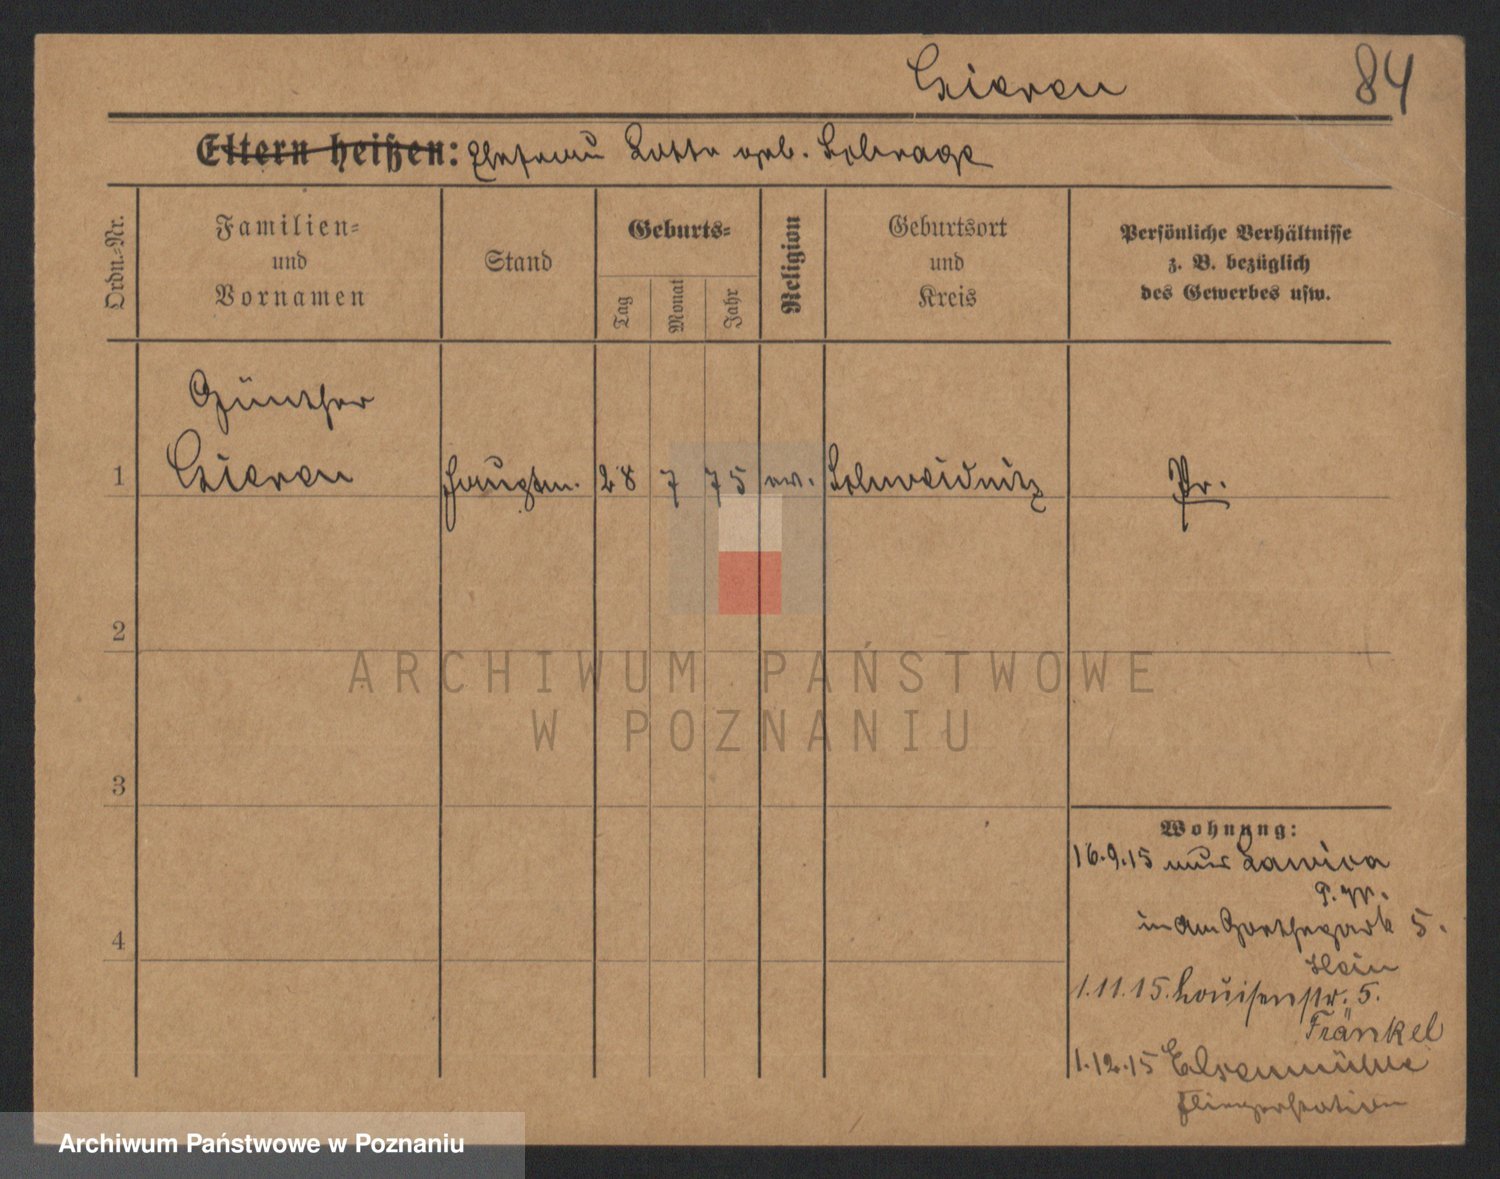 84
Eltern heißen: Ehefrau Lotte geb. Schrage
Ordn.-Nr.
Familien-
und
Vornamen
Stand
Geburts-
Tag
Monat
Jahr
Religion
Geburtsort
und
Kreis
Persönliche Verhältnisse
z. B. bezüglich
des Gewerbes usw.
Günther
1 Hauptm. 28 7 75 ev. Schweidnitz Pr.
2
3
4
Wohnung:
16.9.15 Lawica
in Am Goethepark 5.
1.11.15. Louisenstr. 5.
Fränkel
1.12.15 Elsenmühle
Fliegerstation
ARCHIWUM PAŃSTWOWE
W POZNANIU
Archiwum Państwowe w Poznaniu